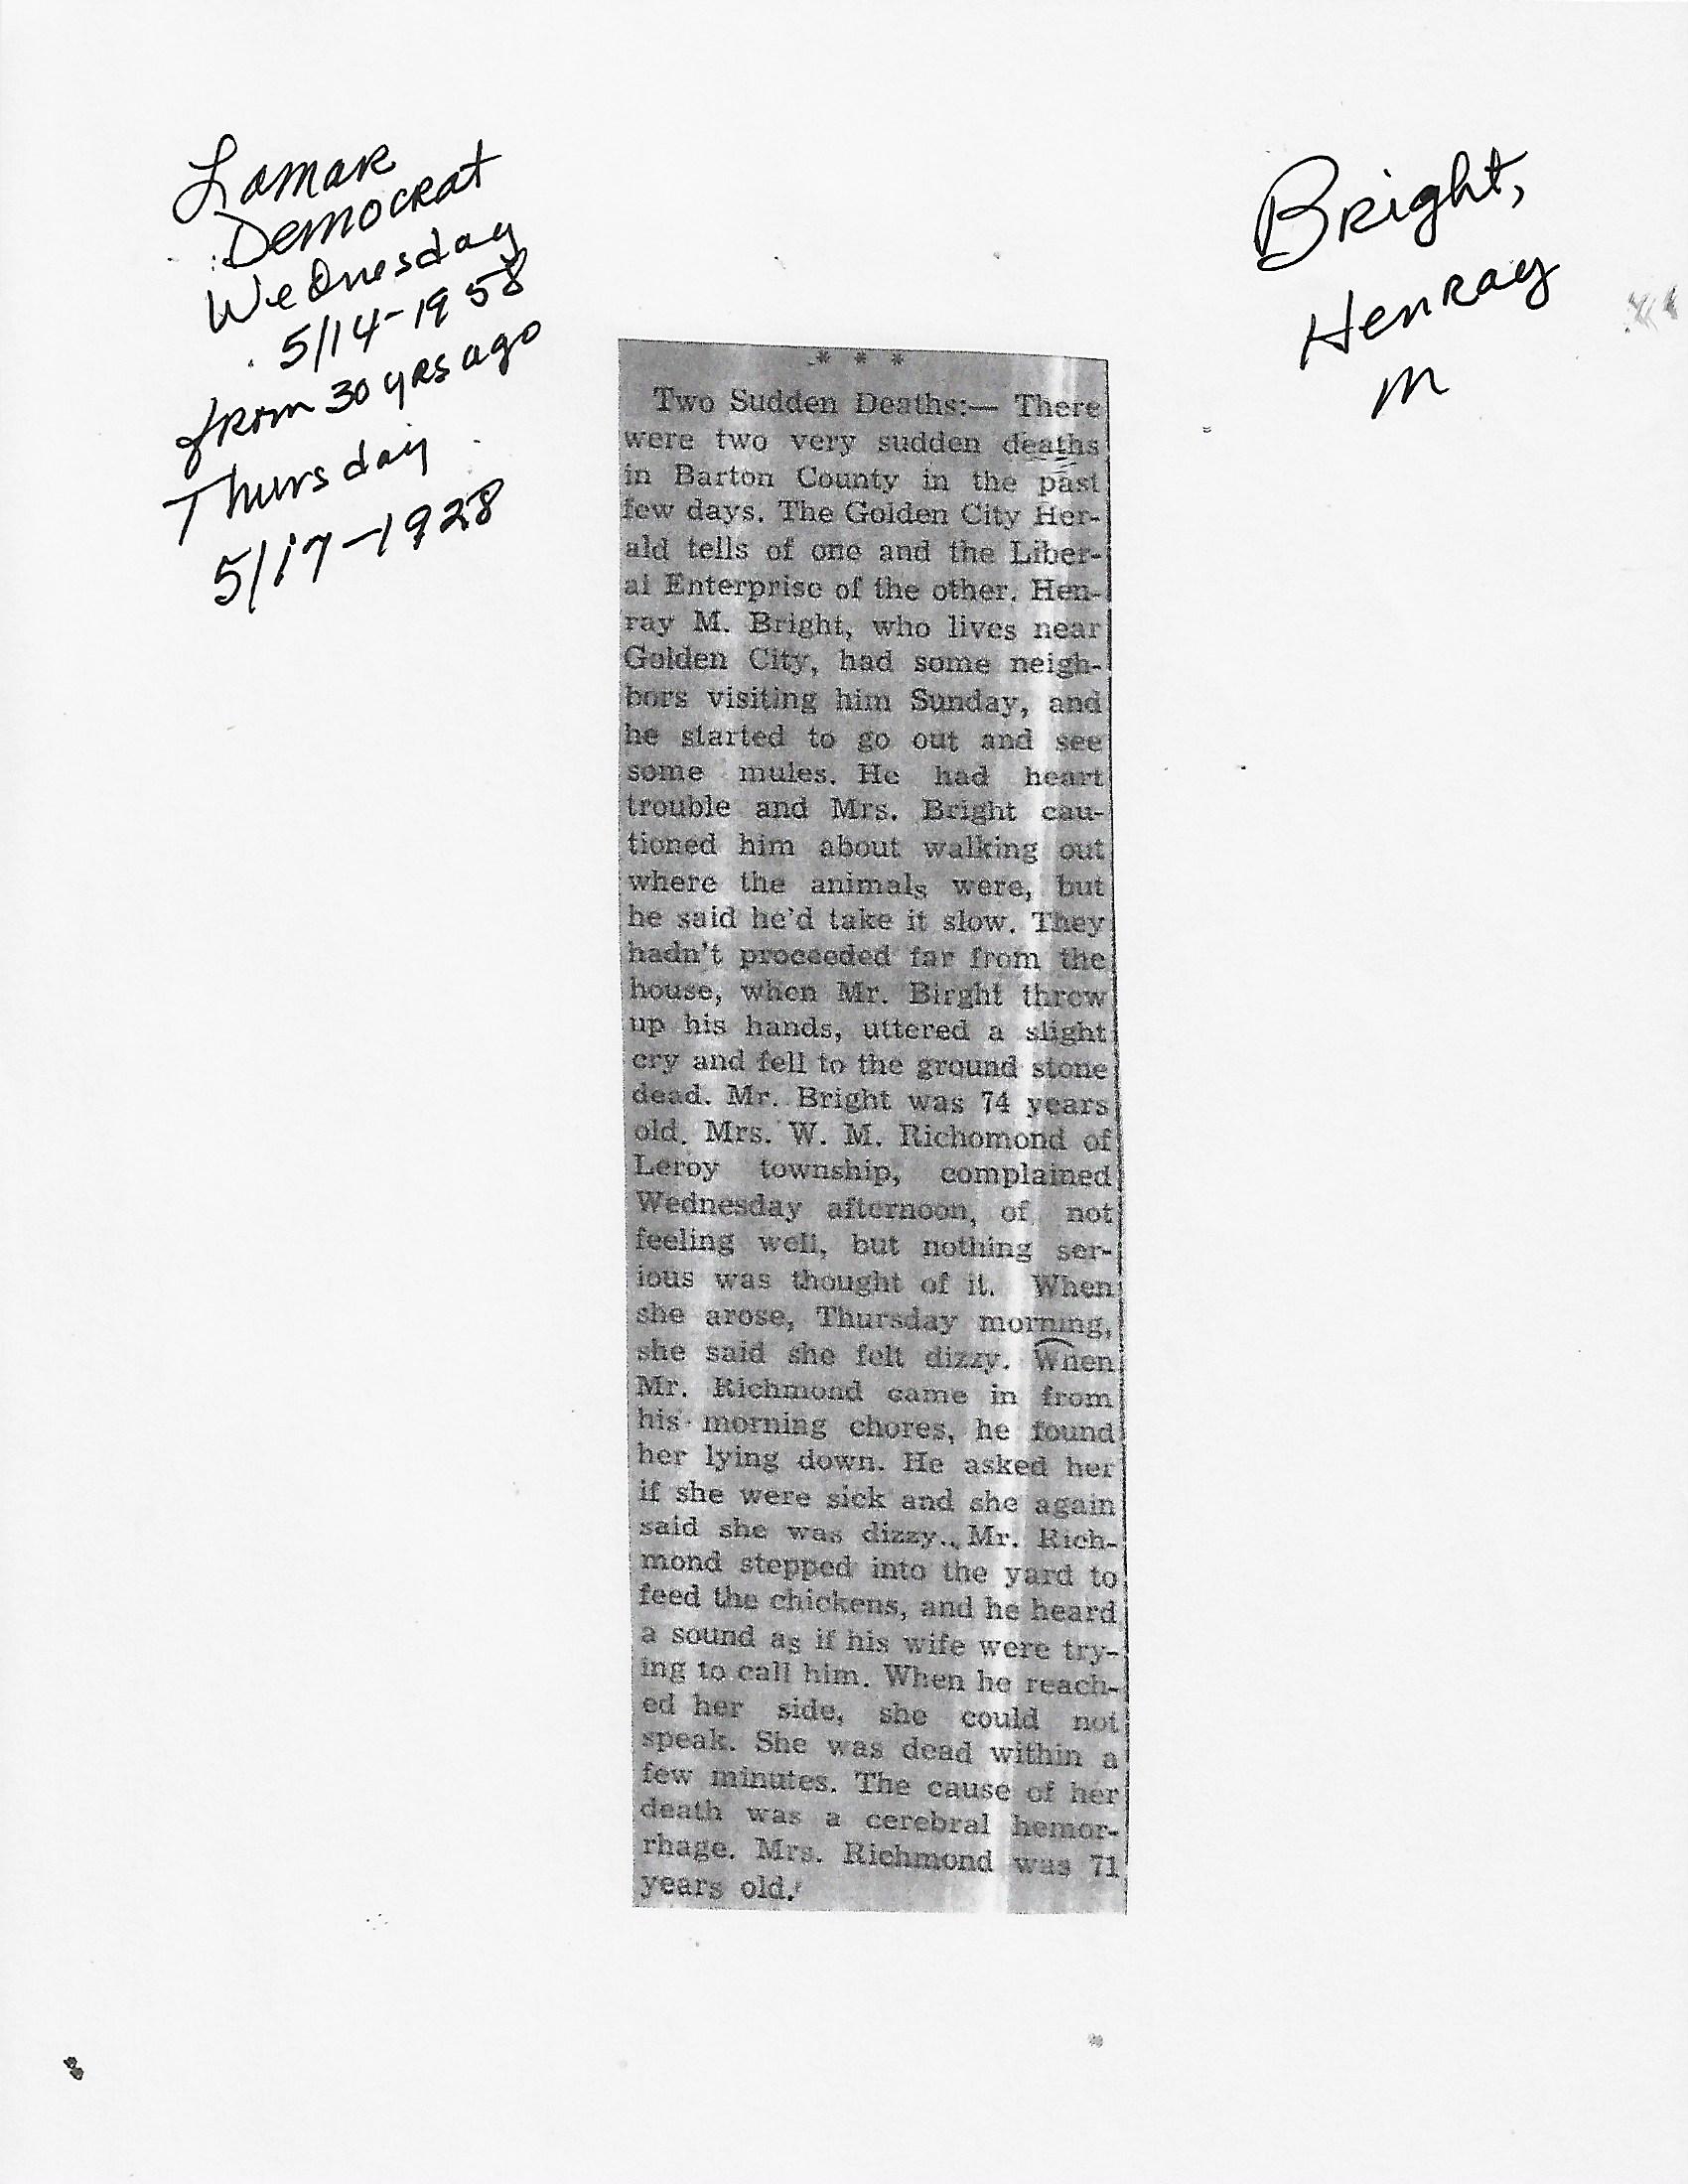 Lamar
Democrat
Wednesday
5/14-1958
from 30 yrs ago
Thursday
5/17-1928
Bright,
Henray
M
* * *
Two Sudden Deaths:— There
were two very sudden deaths
in Barton County in the past
few days. The Golden City Her-
ald tells of one and the Liber-
al Enterprise of the other. Hen-
ray M. Bright, who lives near
Golden City, had some neigh-
bors visiting him Sunday, and
he started to go out and see
some mules. He had heart
trouble and Mrs. Bright cau-
tioned him about walking out
where the animals were, but
he said he'd take it slow. They
hadn't proceeded far from the
house, when Mr. Birght threw
up his hands, uttered a slight
cry and fell to the ground stone
dead. Mr. Bright was 74 years
old. Mrs. W. M. Richomond of
Leroy township, complained
Wednesday afternoon, of not
feeling well, but nothing ser-
ious was thought of it. When
she arose, Thursday morning,
she said she felt dizzy. When
Mr. Richmond came in from
his morning chores, he found
her lying down. He asked her
if she were sick and she again
said she was dizzy.. Mr. Rich-
mond stepped into the yard to
feed the chickens, and he heard
a sound as if his wife were try-
ing to call him. When he reach-
ed her side, she could not
speak. She was dead within a
few minutes. The cause of her
death was a cerebral hemor-
rhage. Mrs. Richmond was 71
years old.